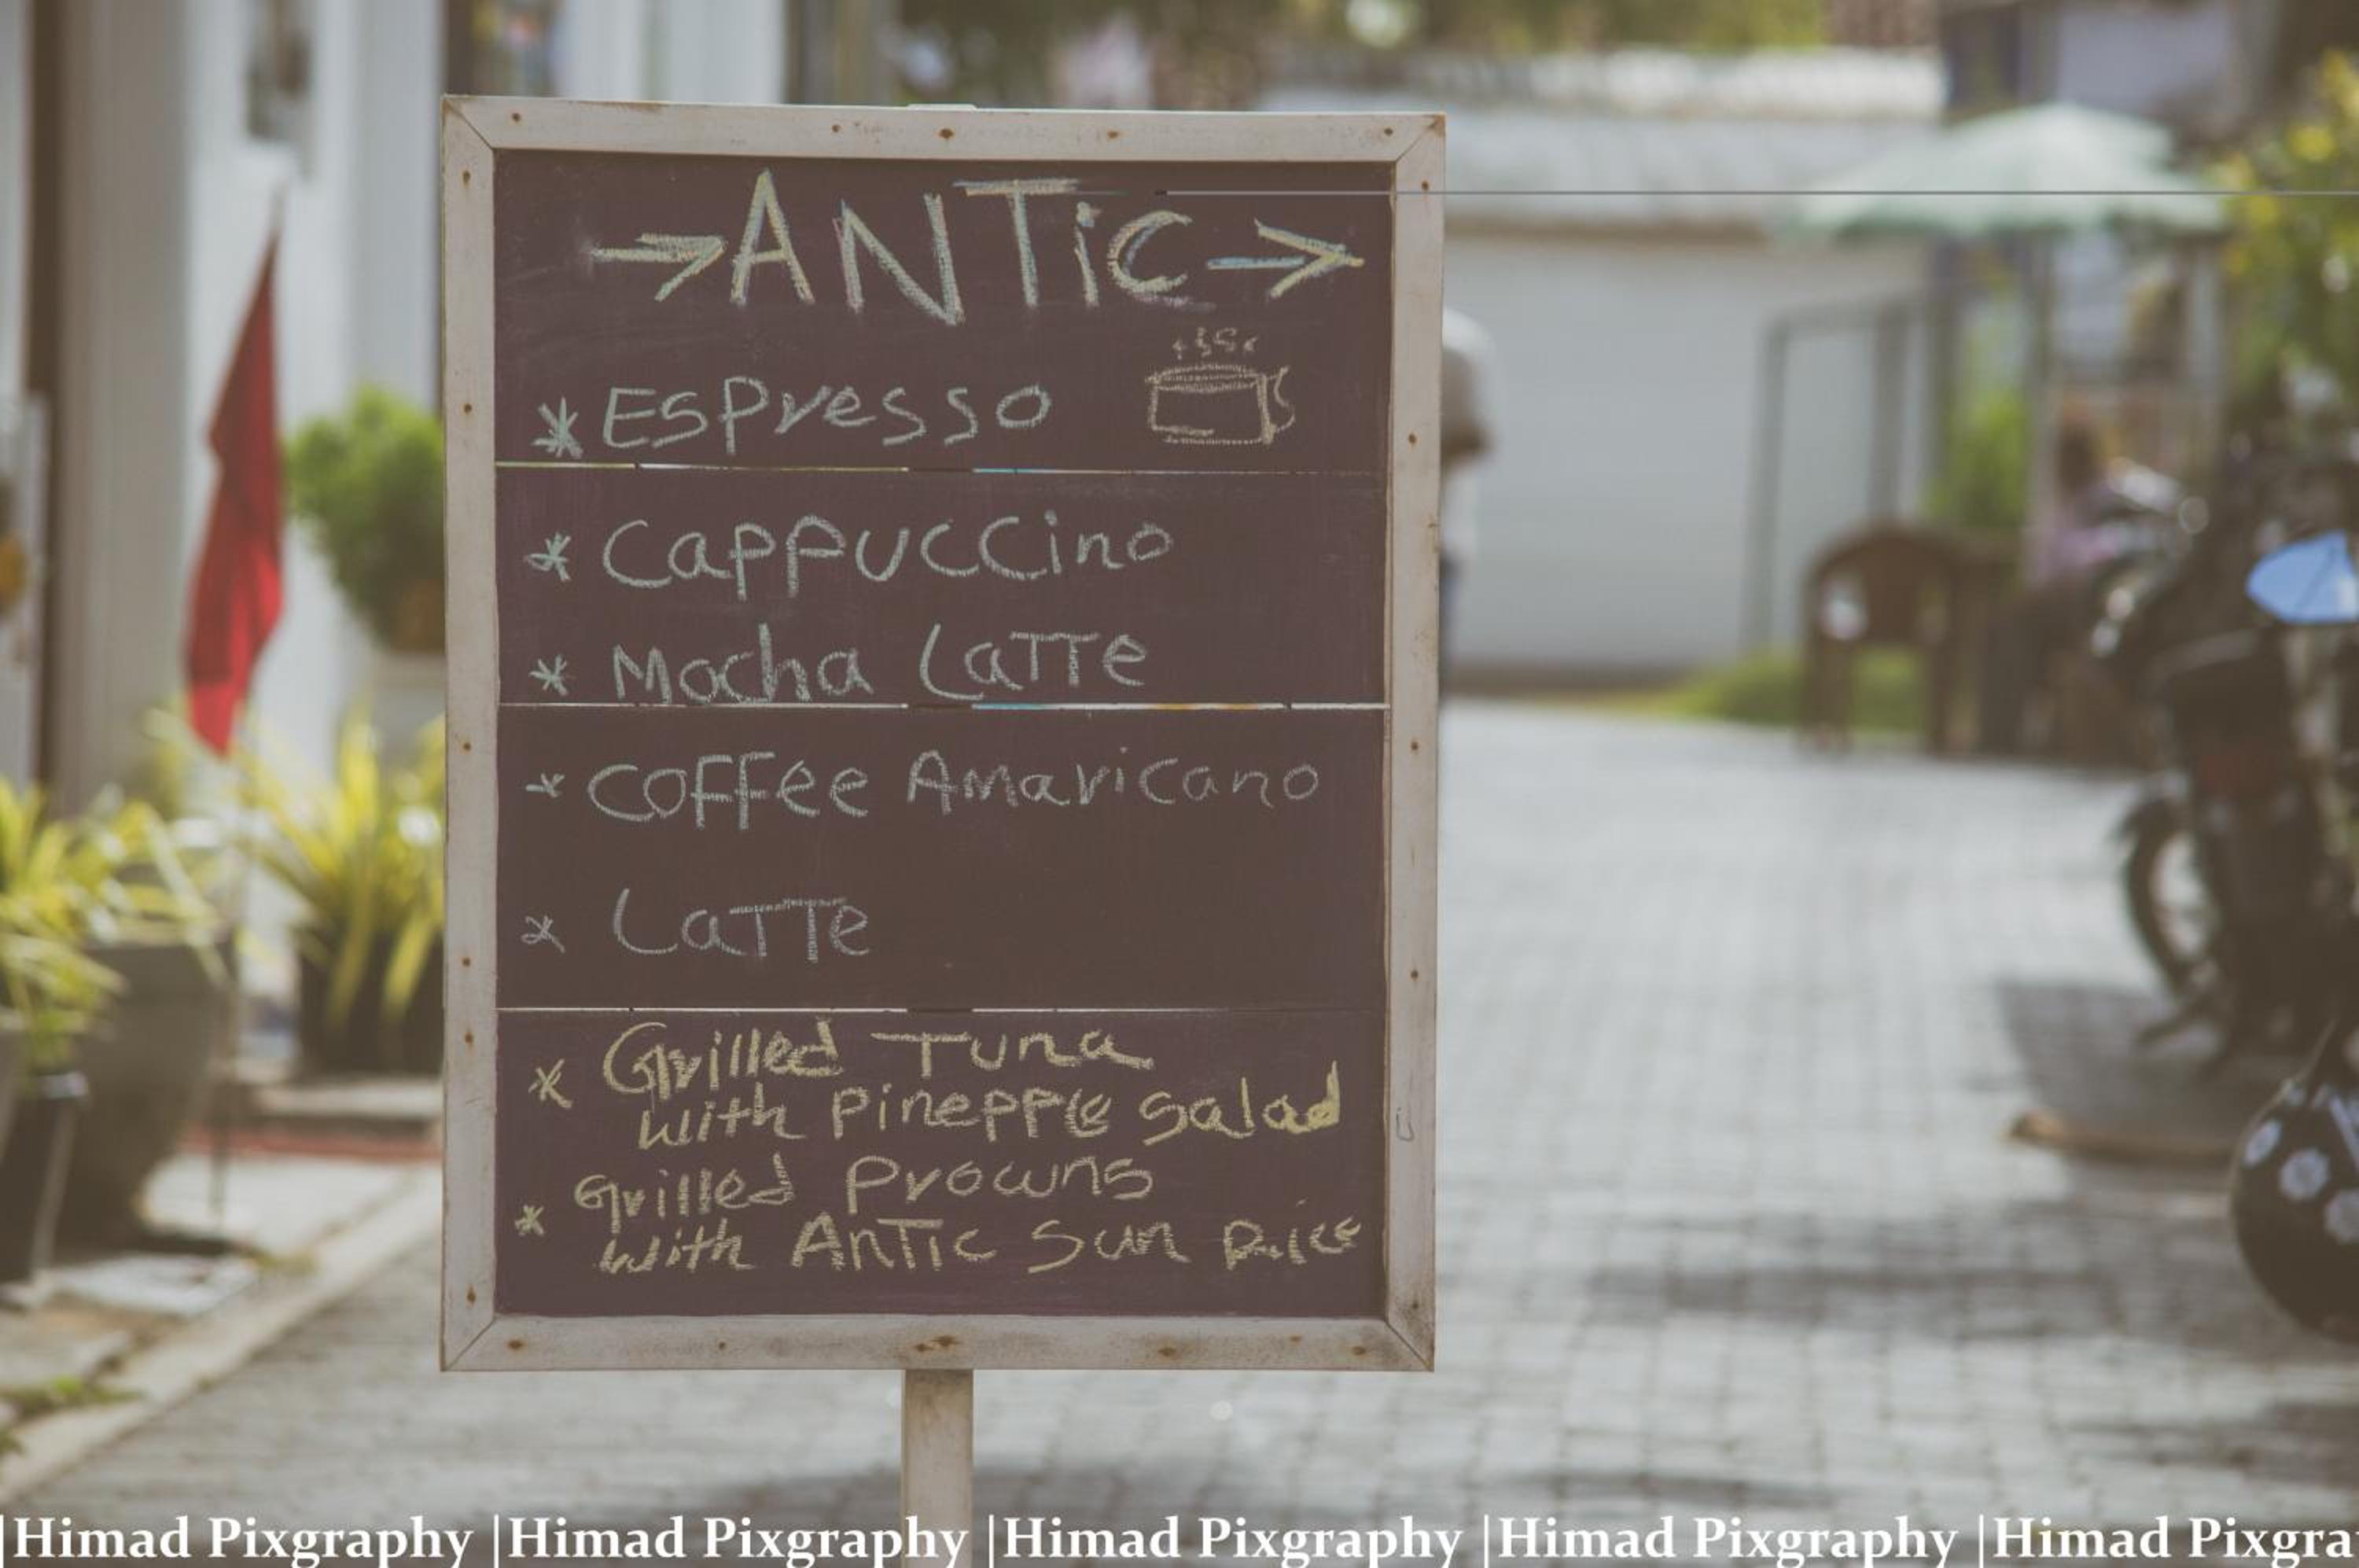 →ANTiC→
* Espresso
* Cappuccino
* Mocha Latte
* Coffee Amaricano
* Latte
* Grilled Tuna
with pinepple salad
* Grilled Prowns
with Antic Sun Rice
|Himad Pixgraphy |Himad Pixgraphy |Himad Pixgraphy |Himad Pixgraphy |Himad Pixgra